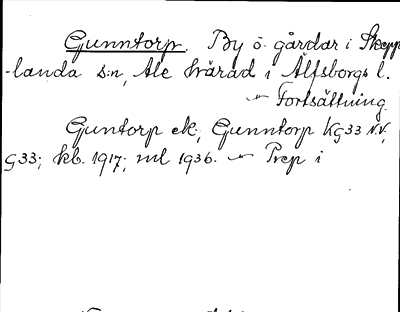 Gunntorp. By o. gårdar i Skepp-
landa s:n, Ale härad i Älfsborgs l.
Fortsättning.
Guntorp ek; Gunntorp Kg33 N.V,
G33; kb. 1917; ml 1936. — Prep i